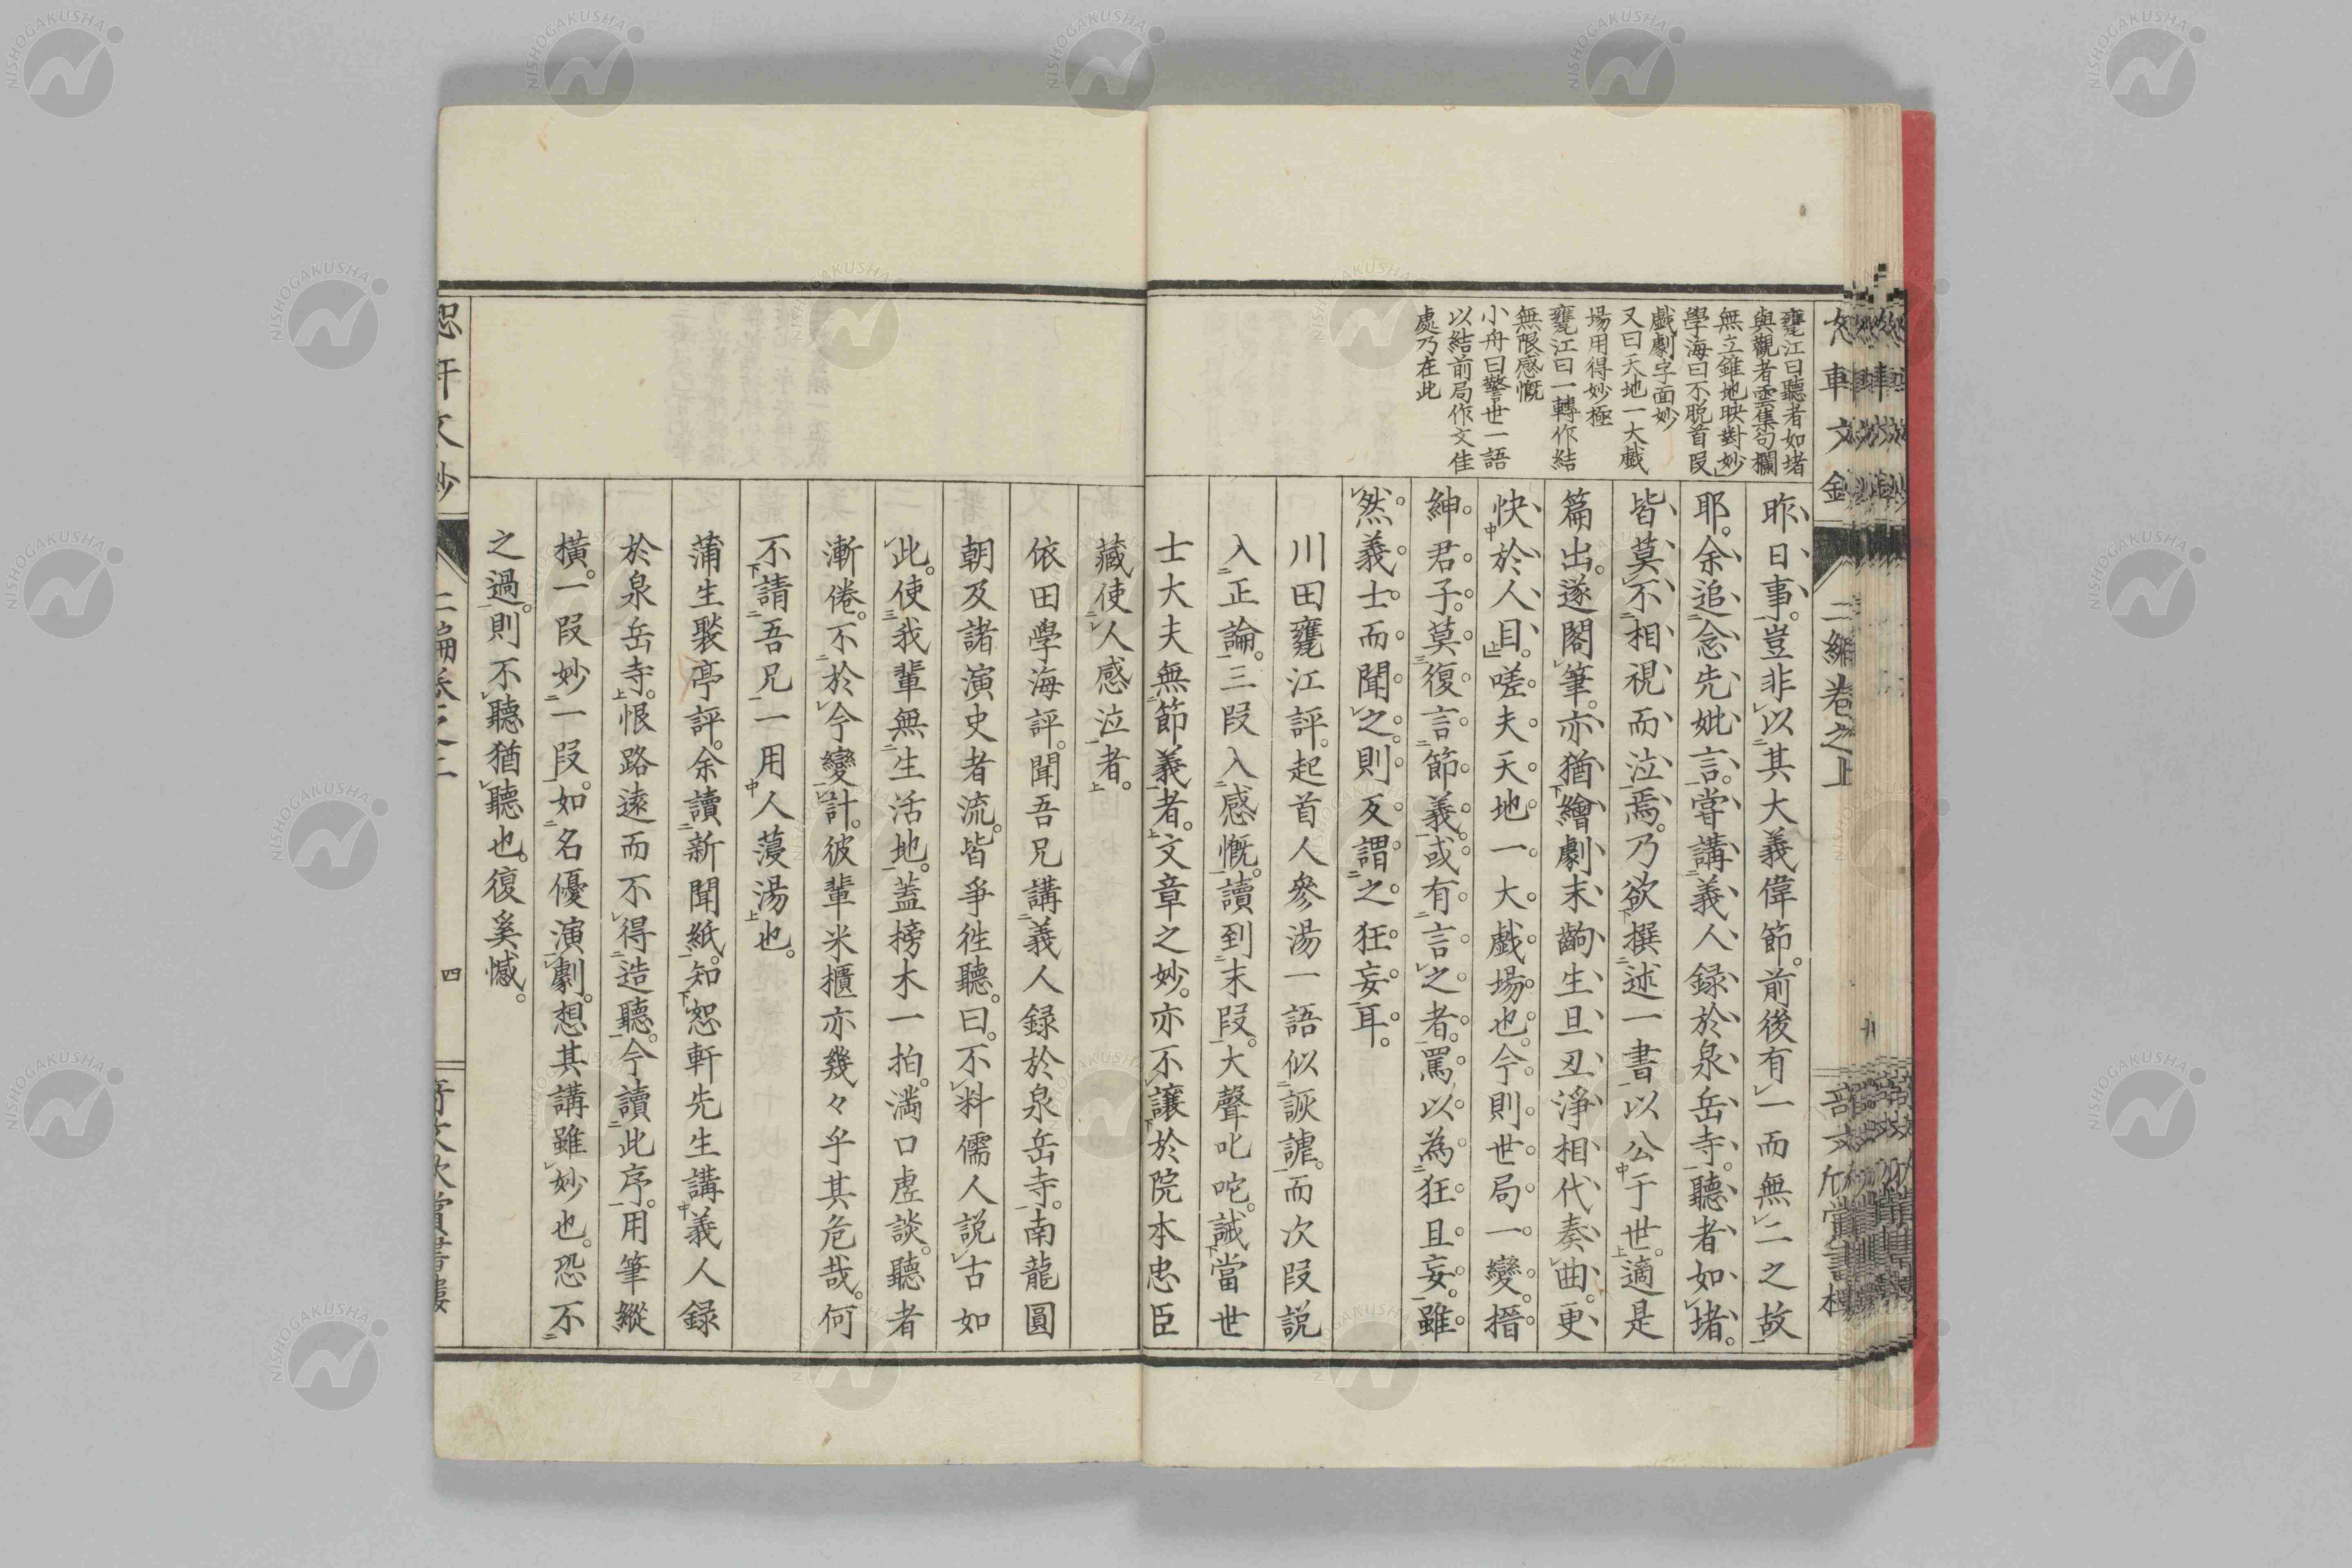 甕江曰聽者如堵
與觀者雲集句欄
無立錐地映對妙
學海曰不脱首段
戲劇字面妙
又曰天地一大戲
場用得妙極
甕江曰一轉作結
無限感慨
小舟曰警世一語
以結前局作文佳
處乃在此
昨日事。豈非以其大義偉節。前後有一而無二之故
耶。余追念先妣言。嘗講義人録於泉岳寺。聽者如堵。
皆莫不相視而泣焉。乃欲撰述一書以公于世。適是
篇出。遂閣筆。亦猶繪劇末齣生旦丑淨相代奏曲。更
快於人目。嗟夫天地一大戲場也。今則世局一變。搢
紳君子。莫復言節義。或有言之者。罵以為狂且妄。雖
然義士而聞之。則反謂之狂妄耳。
川田甕江評。起首人參湯一語似詼謔。而次段説
入正論。三段入感慨。讀到末段。大聲叱咤。誠當世
士大夫無節義者。文章之妙。亦不讓於院本忠臣
藏使人感泣者。
依田學海評。聞吾兄講義人録於泉岳寺。南龍圓
朝及諸演史者流。皆爭徃聽。曰。不料儒人説古如
此。使我輩無生活地。蓋榜木一拍。滿口虚談。聽者
漸倦。不於今變計。彼輩米櫃亦幾々乎其危哉。何
不請吾兄一用人蓡湯也。
蒲生褧亭評。余讀新聞紙。知恕軒先生講義人録
於泉岳寺。恨路遠而不得造聽。今讀此序。用筆縱
横。一段妙一段。如名優演劇。想其講雖妙也。恐不
之過。則不聽猶聽也。復奚憾。
二編卷之上
四
NISHOGAKUSHA